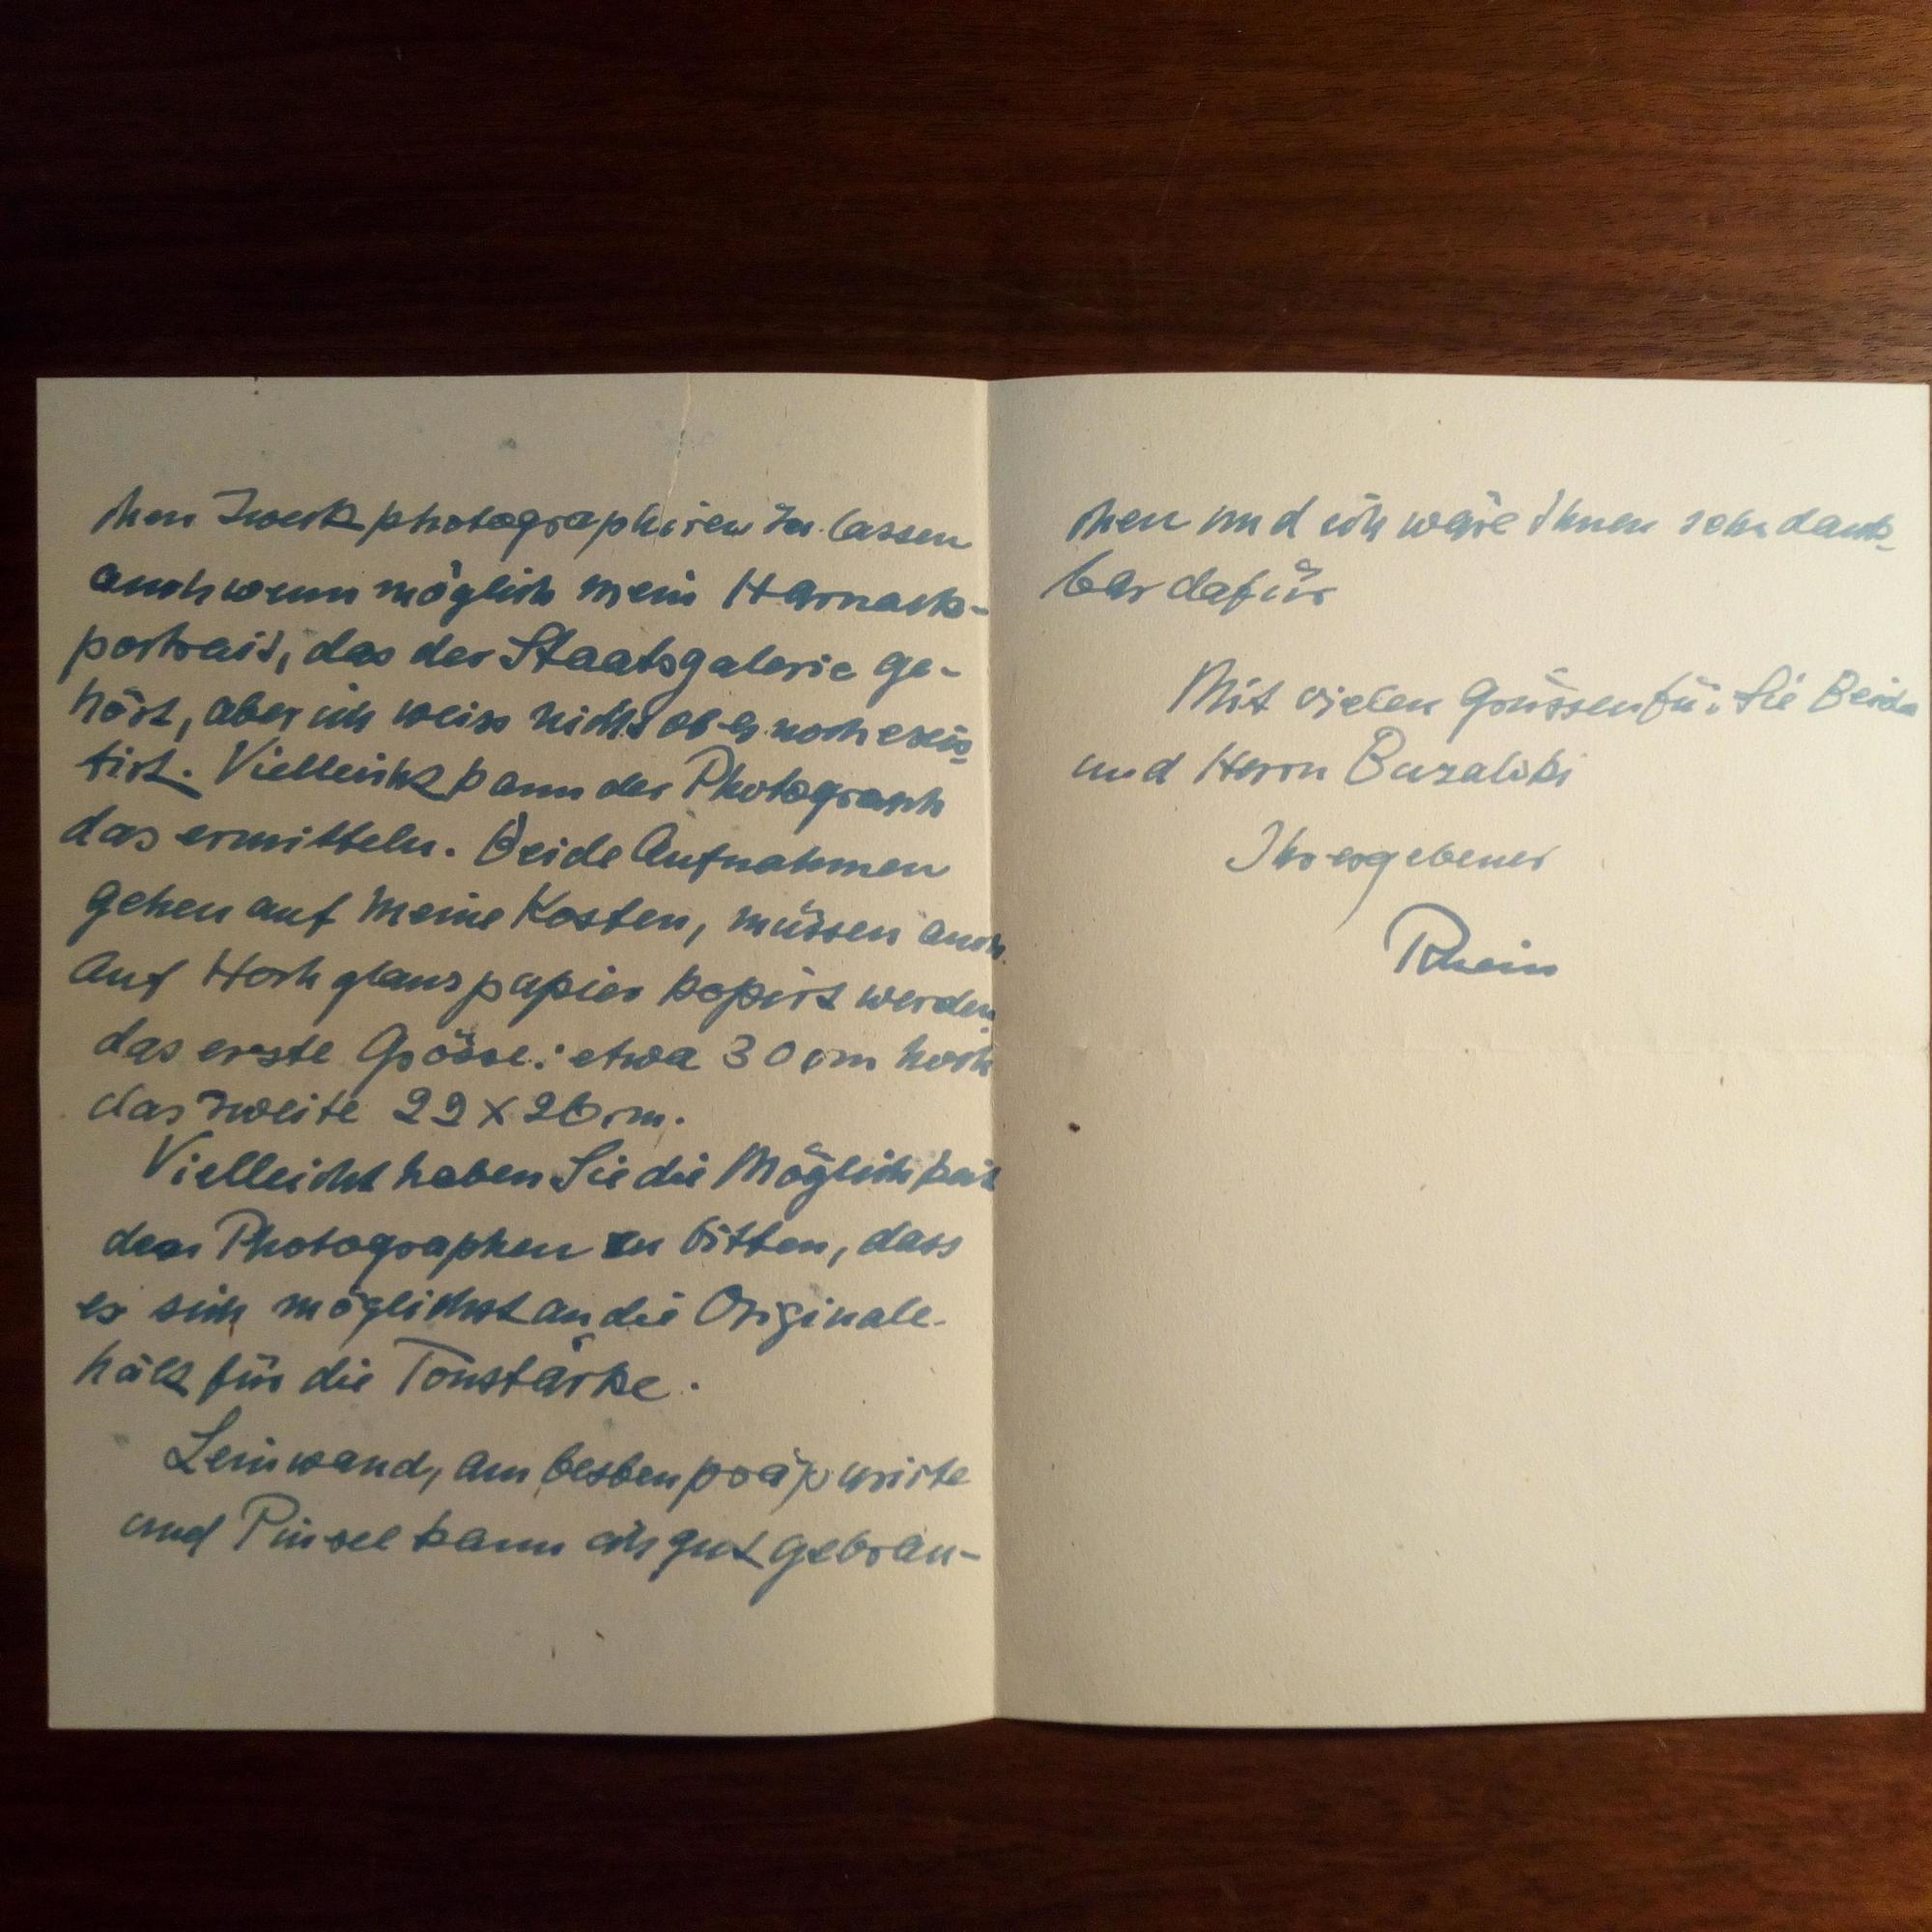 chen Zweck photographiren zu lassen
auch wenn möglich mein Harnack-
portrait, das der Staatsgalerie ge-
hört, aber ich weiss nicht ob es noch exis-
tirt. Vielleicht kann der Photograph
das ermitteln. Beide Aufnahmen
gehen auf meine Kosten, müssen auch
auf Hochglanzpapier kopirt werden,
das erste Grösse: etwa 30 cm hoch
das zweite 22 x 26 cm.
Vielleicht haben Sie die Möglichkeit
den Photographen zu bitten, dass
er sich möglichst an die Originale
hält für die Tonstärke.
Leinwand, am besten präparirte
und Pinsel kann ich gut gebrau-
chen und ich wäre Ihnen sehr dank-
bar dafür
Mit vielen Grüssen für Sie Beide
und Herrn
Ihr ergebener
Rhein